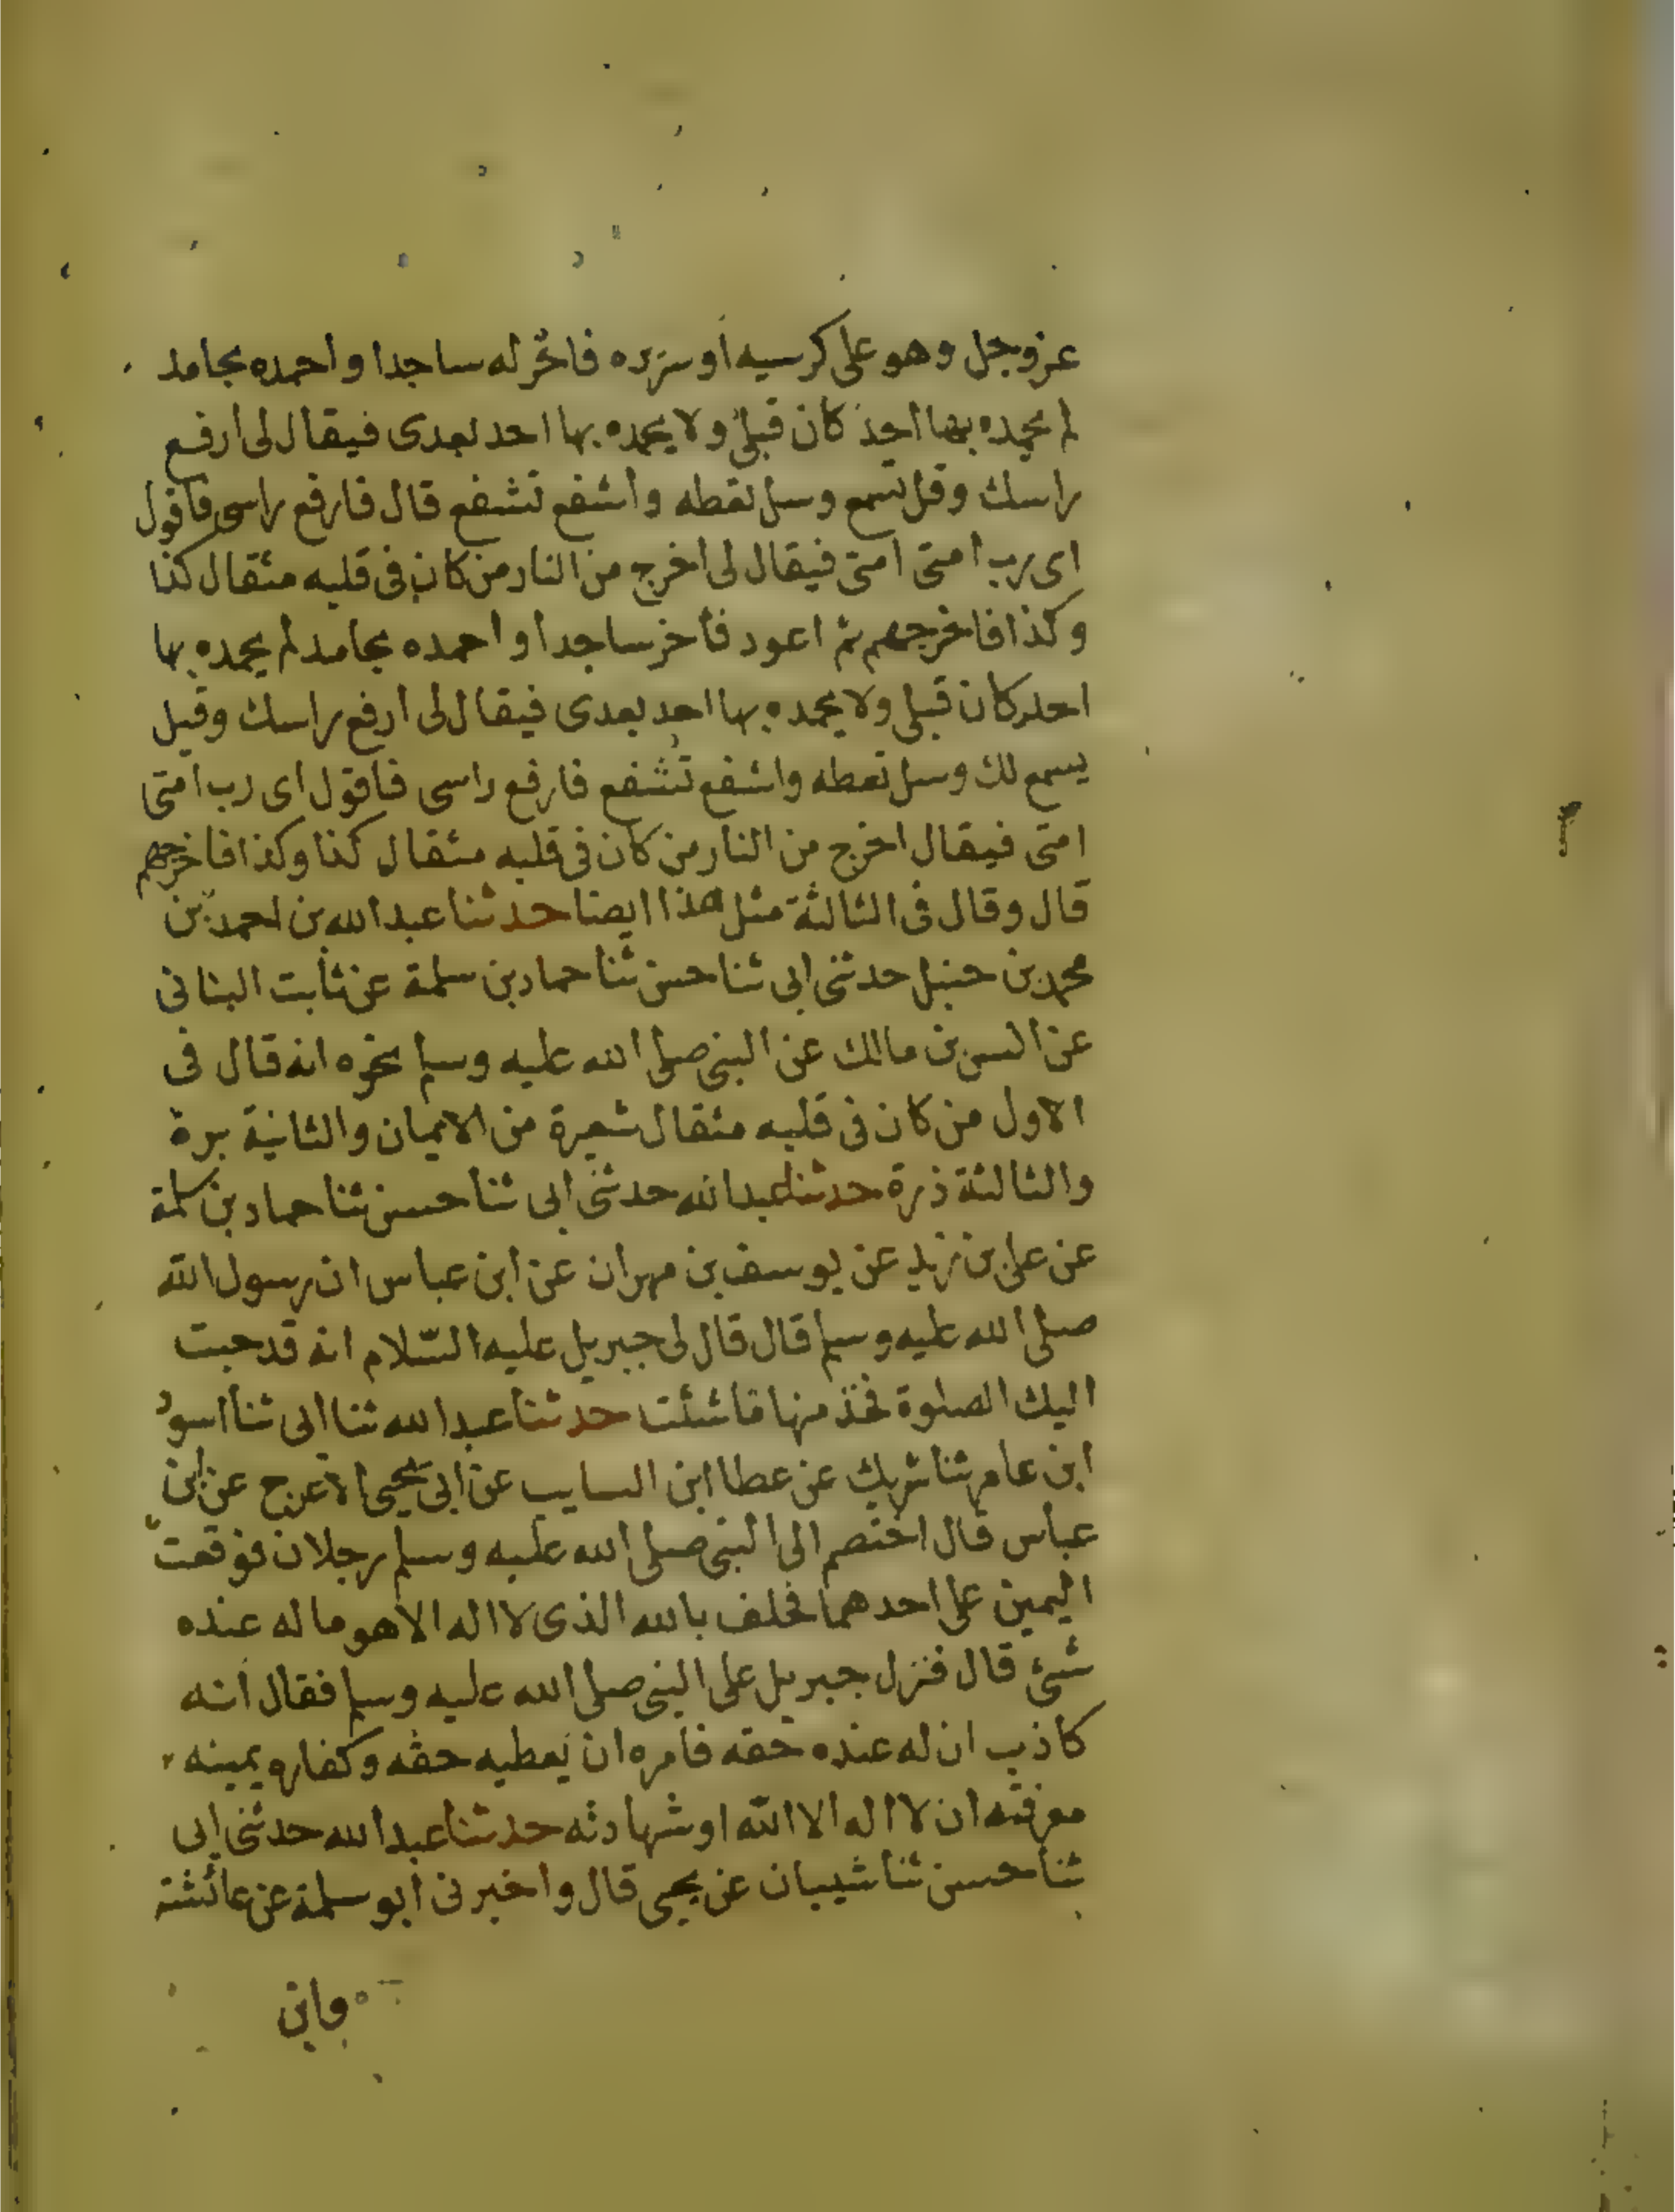 عز وجل وهو على كرسيه أو سريره فاخرّ له ساجدا واحمده بمحامد
لم يحمده بها احد كان قبلي ولا يحمده بها احد بعدى فيقال لى ارفع
راسك وقل تسمع وسل تعطه واشفع تشفع قال فارفع راسى فاقول
اى رب امتى امتى فيقال لى اخرج من النار من كان فى قلبه مثقال كذا
وكذا فاخرجهم ثم اعود فأخر ساجدا واحمده بمحامد لم يحمده بها
احد كان قبلي ولا يحمده بها احد بعدى فيقال لى ارفع راسك وقيل
يسمع لك وسل تعطه واشفع تشفع فارفع راسى فاقول اى رب امتى
امتى فيقال اخرج من النار من كان فى قلبه مثقال كذا وكذا فاخرجهم
قال وقال فى الثالثة مثل هذا ايضا حدثنا عبد الله بن احمد بن
محمد بن حنبل حدثنى ابى ثنا حسن ثنا حماد بن سلمة عن ثابت البنانى
عن انس بن مالك عن النبى صلى الله عليه وسلم بنحوه انه قال فى
الاول من كان فى قلبه مثقال شعيرة من الايمان والثانية برة
والثالثة ذرة حدثنا عبد الله حدثنى ابى ثنا حسن ثنا حماد بن سلمة
عن على بن زيد عن يوسف بن مهران عن ابن عباس ان رسول الله
صلى الله عليه وسلم قال قال لى جبريل عليه السّلام انه قد حبت
اليك الصلوة فخذ منها ما شئت حدثنا عبد الله ثنا ابى ثنا اسود
ابن عامر ثنا شريك عن عطا ابن السايب عن ابى يحيى الاعرج عن ابن
عباس قال اختصم الى النبى صلى الله عليه وسلم رجلان فوقعت
اليمين على احدهما فحلف بالله الذى لا اله الا هو ما له عنده
شئ قال فنزل جبريل على النبى صلى الله عليه وسلم فقال انه
كاذب ان له عنده حقه فامره ان يعطيه حقه وكفاره يمينه
معرفته ان لا اله الا الله او شهادته حدثنا عبد الله حدثنى ابى
ثنا حسن ثنا شيبان عن يحيى قال واخبرنى ابو سلمة عن عائشة
وابن